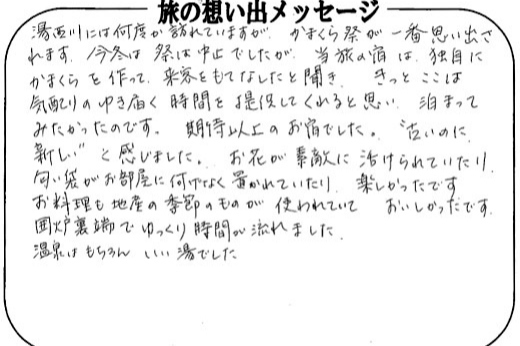 旅の想い出メッセージ
湯西川には何度か訪れていますが、かまくら祭が一番思い出さ
れます。今冬は祭は中止でしたが、当旅の宿は、独自に
かまくらを作って、来客をもてなしたと聞き、きっとここは
気配りのゆき届く時間を提供してくれると思い、泊まって
みたかったのです。期待以上のお宿でした。"古いのに
新しい"と感じました。お花が素敵に活けられていたり、
匂い袋がお部屋に何げなく置かれていたり、楽しかったです
お料理も地産の季節のものが使われていておいしかったです。
囲炉裏端でゆっくり時間が流れました。
温泉はもちろんいい湯でした